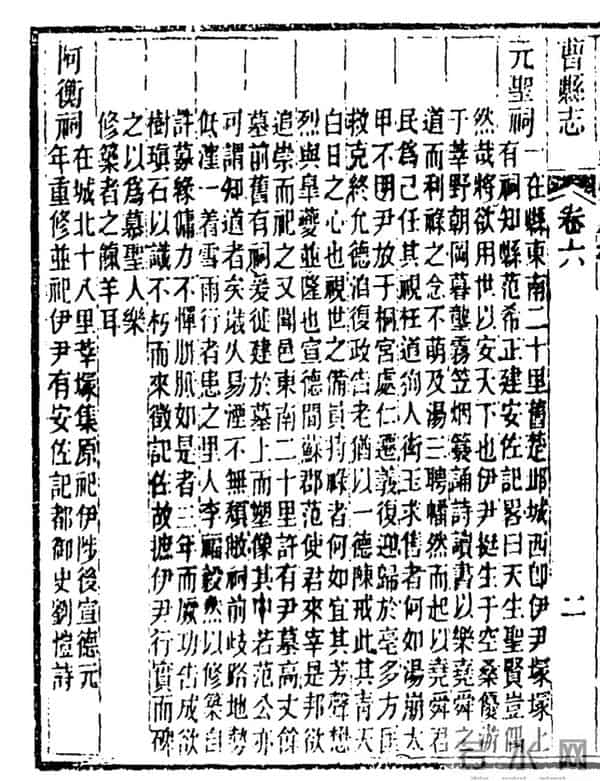 曹縣志 卷六 二
元聖祠一在縣東南二十里舊楚邱城西卽伊尹塚塚上
有祠知縣范希正建安佐記畧曰天生聖賢豈偶
然哉將欲用世以安天下也伊尹挺生于空桑優游
于莘野朝岡暮壟霧笠烟簑誦詩讀書以樂堯舜之
道而利祿之念不萌及湯三聘幡然而起以堯舜君
民爲己任其視枉道狥人衒玉求售者何如湯崩太
甲不明尹放于桐宮處仁遷義復迎歸於亳多方匡
救克終允德洎復政告老猶以一德陳戒此其靑天
白日之心也視世之備員持祿者何如宜其芳聲想
烈與皐夔並隆也宣德間蘇郡范使君來宰是邦欲
追崇而祀之又聞邑東南二十里許有尹墓高丈餘
墓前舊有祠爰從建於墓上而塑像其中若范公亦
可謂知道者矣歲久易湮不無頹敝祠前歧路地勢
低漥一着雪雨行者患之里人李福毅然以修築自
許募緣傭力不憚胼胝如是者三年而厥功告成欲
樹塡石以識不朽而來徵記佐故摭伊尹行實而碑
之以爲慕聖人樂
修築者之餼羊耳
阿衡祠在城北十八里莘塚集原祀伊陟後宣德元
年重修並祀伊尹有安佐記都御史劉愷詩